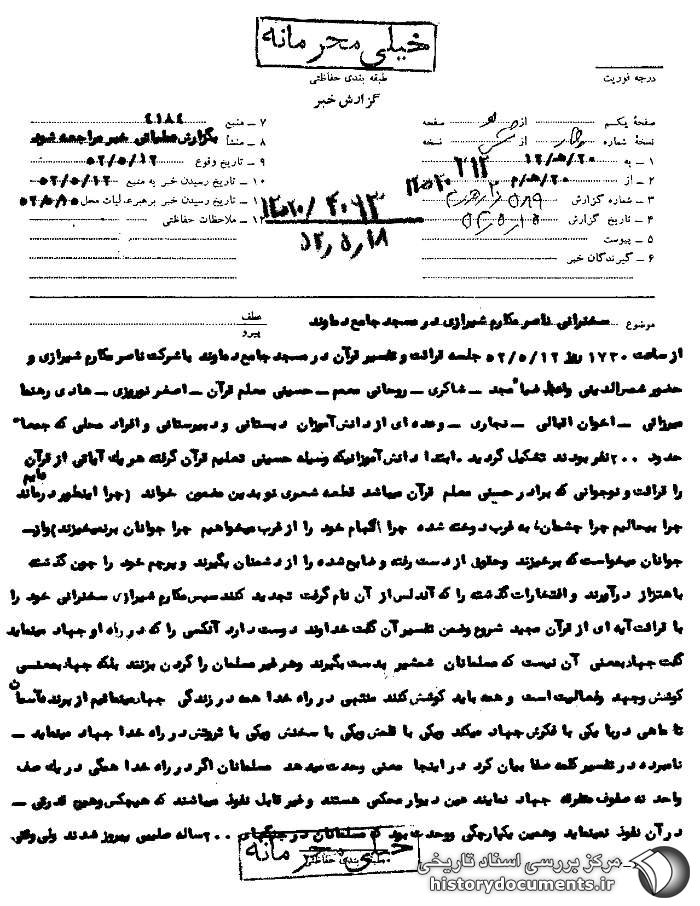 خیلی محرمانه
طبقه بندی حفاظتی
درجه فوریت
گزارش خبر
صفحهٔ یکم از صفحه
نسخهٔ شماره از نسخه
۱ – به ۲۰/ه/۱۲ ۳۱۲
۲ – از ۲۰/ه/
۳ – شماره گزارش
۴ – تاریخ گزارش
۵ – پیوست
۶ – گیرندگان خبر
۷ – منبع ۴۱۸۴
۸ – منشأ بگزارش عملیاتی خبر مراجعه شود
۹ – تاریخ وقوع ۵۲/۵/۱۲
۱۰ – تاریخ رسیدن خبر به منبع ۵۲/۵/۱۲
۱۱ – تاریخ رسیدن خبر برهبر عملیات محل ۵۲/۵/۱۵
۱۲ – ملاحظات حفاظتی
۵۲/۵/۱۸
موضوع سخنرانی ناصر مکارم شیرازی در مسجد جامع دماوند
عطف
پیرو
از ساعت ۱۷۳۰ روز ۵۲/۵/۱۲ جلسه قرائت و تفسیر قرآن در مسجد جامع دماوند باشرکت ناصر مکارم شیرازی و
حضور شمس الدینی واعظ مجد – شاکری – روحانی معمم – حسینی معلم قرآن – اصغر نوریزی – هادی رهنما
میرزائی – اخوان اقبالی – نجاری – وعده ای از دانش آموزان دبستانی و دبیرستانی و افراد محلی که جمعاً
حدود ۲۰۰ نفر بودند تشکیل گردید . ابتدا دانش آموزانیکه وسیله حسینی تعلیم قرآن گرفته هر یک آیاتی از قرآن
را قرائت و نوجوانی که برادر حسینی معلم قرآن میباشد قطعه شعری نو بدین مضمون خواند (چرا اینطور درمانده
ایم
چرا بیحالیم چرا چشمان ، به غرب دوخته شده چرا الهام خود را از غرب میخواهیم چرا جوانان برنمیخیزند) واز –
جوانان میخواست که برخیزند وحقوق از دست رفته و ضایع شده را از دشمنان بگیرند و پرچم خود را چون گذشته
باهتزاز درآورند و افتخارات گذشته را که آندلس از آن نام گرفت تجدید کنند سپس مکارم شیرازی سخنرانی خود را
با قرائت آیه ای از قرآن مجید شروع وضمن تفسیر آن گفت خداوند دوست دارد آنکسی را که در راه او جهاد مینماید
گفت جهاد بمعنی آن نیست که مسلمانان شمشیر بدست بگیرند وهر غیر مسلمان را گردن بزنند بلکه جهاد بمعنی
کوشش وجهد وفعالیت است و همه باید کوشش کنند منتهی در راه خدا همه در زندگی جهاد مینمائیم از پرنده آسمان
تا ماهی دریا یکی با فکرش جهاد میکند ویکی با قلمش ویکی با سخنش ویکی با ثروتش در راه خدا جهاد مینماید –
نامبرده در تفسیر کلمه صفا بیان کرد در اینجا معنی وحدت میدهد مسلمانان اگر در راه خدا همگی در یک صف
واحد نه صفوف متفرقه جهاد نمایند عین دیوار محکمی هستند و غیر قابل نفوذ میباشند که هیچکس وهیچ قدرتی –
در آن نفوذ نمینماید وهمین یکپارچگی ووحدت بود که مسلمانان در جنگهای ۲۰۰ ساله صلیبی پیروز شدند ولی وقتی
طبقه بندی حفاظتی
خیلی محرمانه
مرکز بررسی اسناد تاریخی
historydocuments.ir